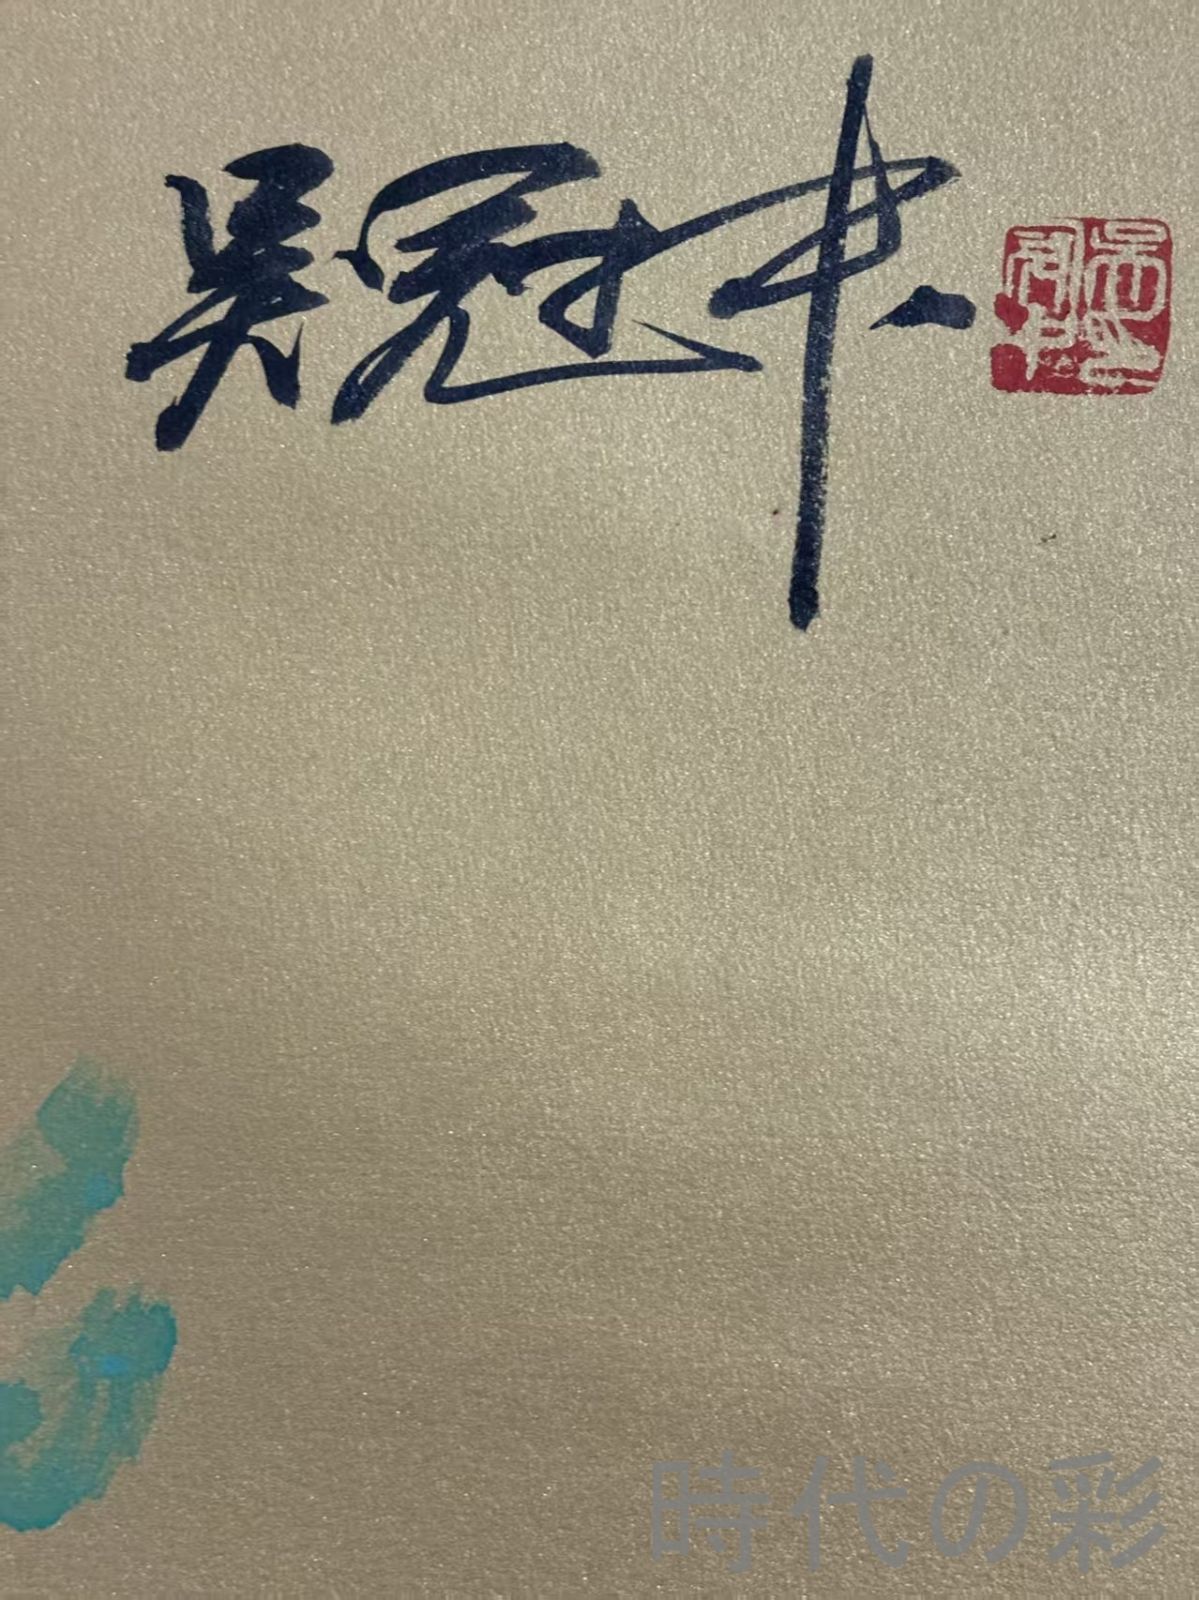 吴冠中
時代の彩